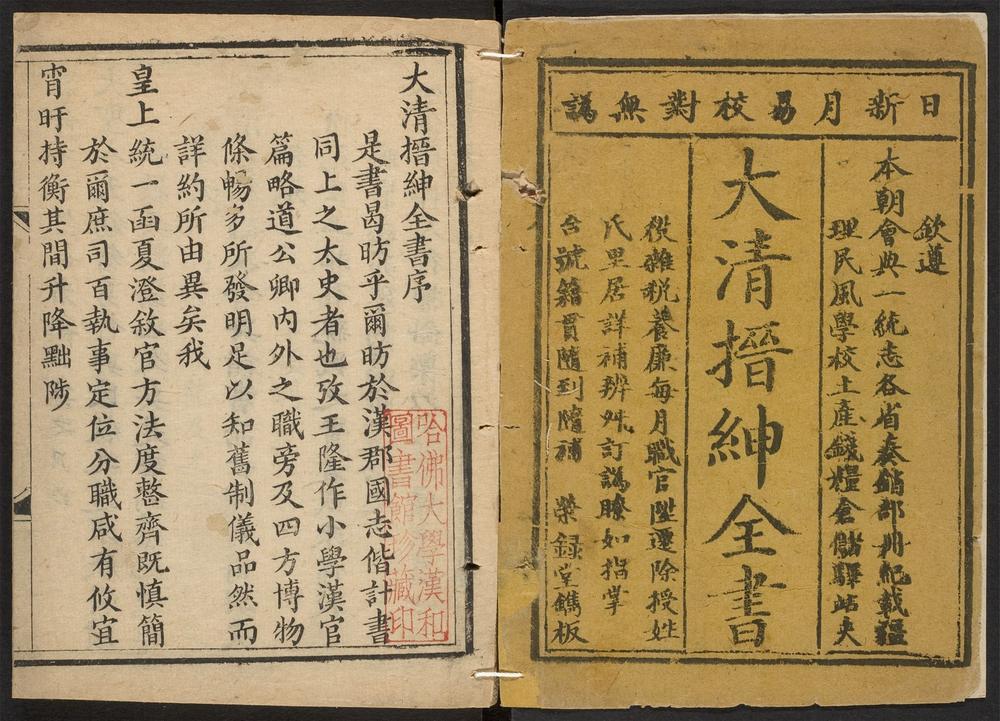 日新月易校對無譌
欽遵
本朝會典一統志各省奏銷部冊紀載疆
理民風學校土產錢糧倉儲驛站夫
大清搢紳全書
役雜税養廉每月職官陞遷除授姓
氏里居詳補辨姓訂譌瞭如指掌
台號籍貫隨到隨補 榮錄堂鐫板
大清搢紳全書序
是書曷昉乎爾昉於漢郡國志偕計書
同上之太史者也攷王隆作小學漢官
篇略道公卿內外之職旁及四方博物
條暢多所發明足以知舊制儀品然而
詳約所由異矣我
皇上統一函夏澄敘官方法度整齊既慎簡
於爾庶司百執事定位分職咸有攸宜
宵旰持衡其間升降黜陟
哈佛大學漢和
圖書館珍藏印